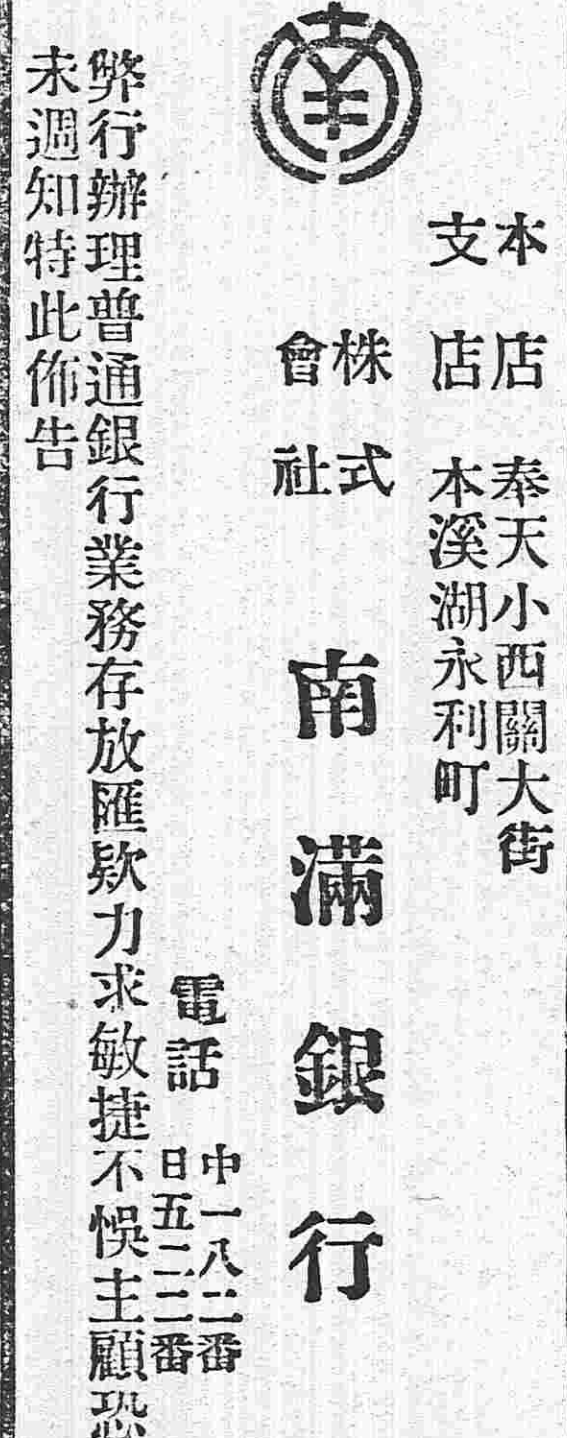 本店 奉天小西關大街
支店 本溪湖永利町
株式
會社
南滿銀行
電話
中一八二番
日五二二番
弊行辦理普通銀行業務存放匯欵力求敏捷不悞主顧恐
未週知特此佈告